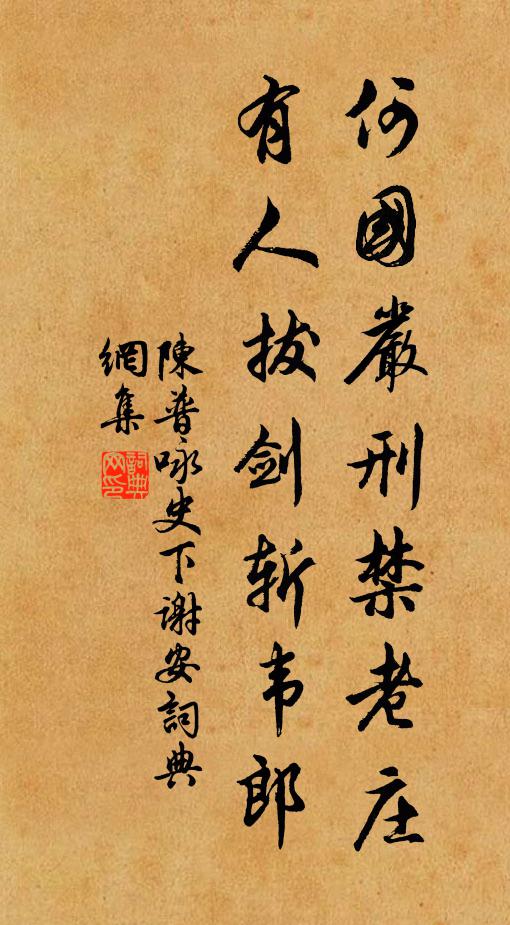 何國嚴刑禁老庄
有人拔剑斩韦郎
陳普咏史下谢安詞典
網集
詞典网印